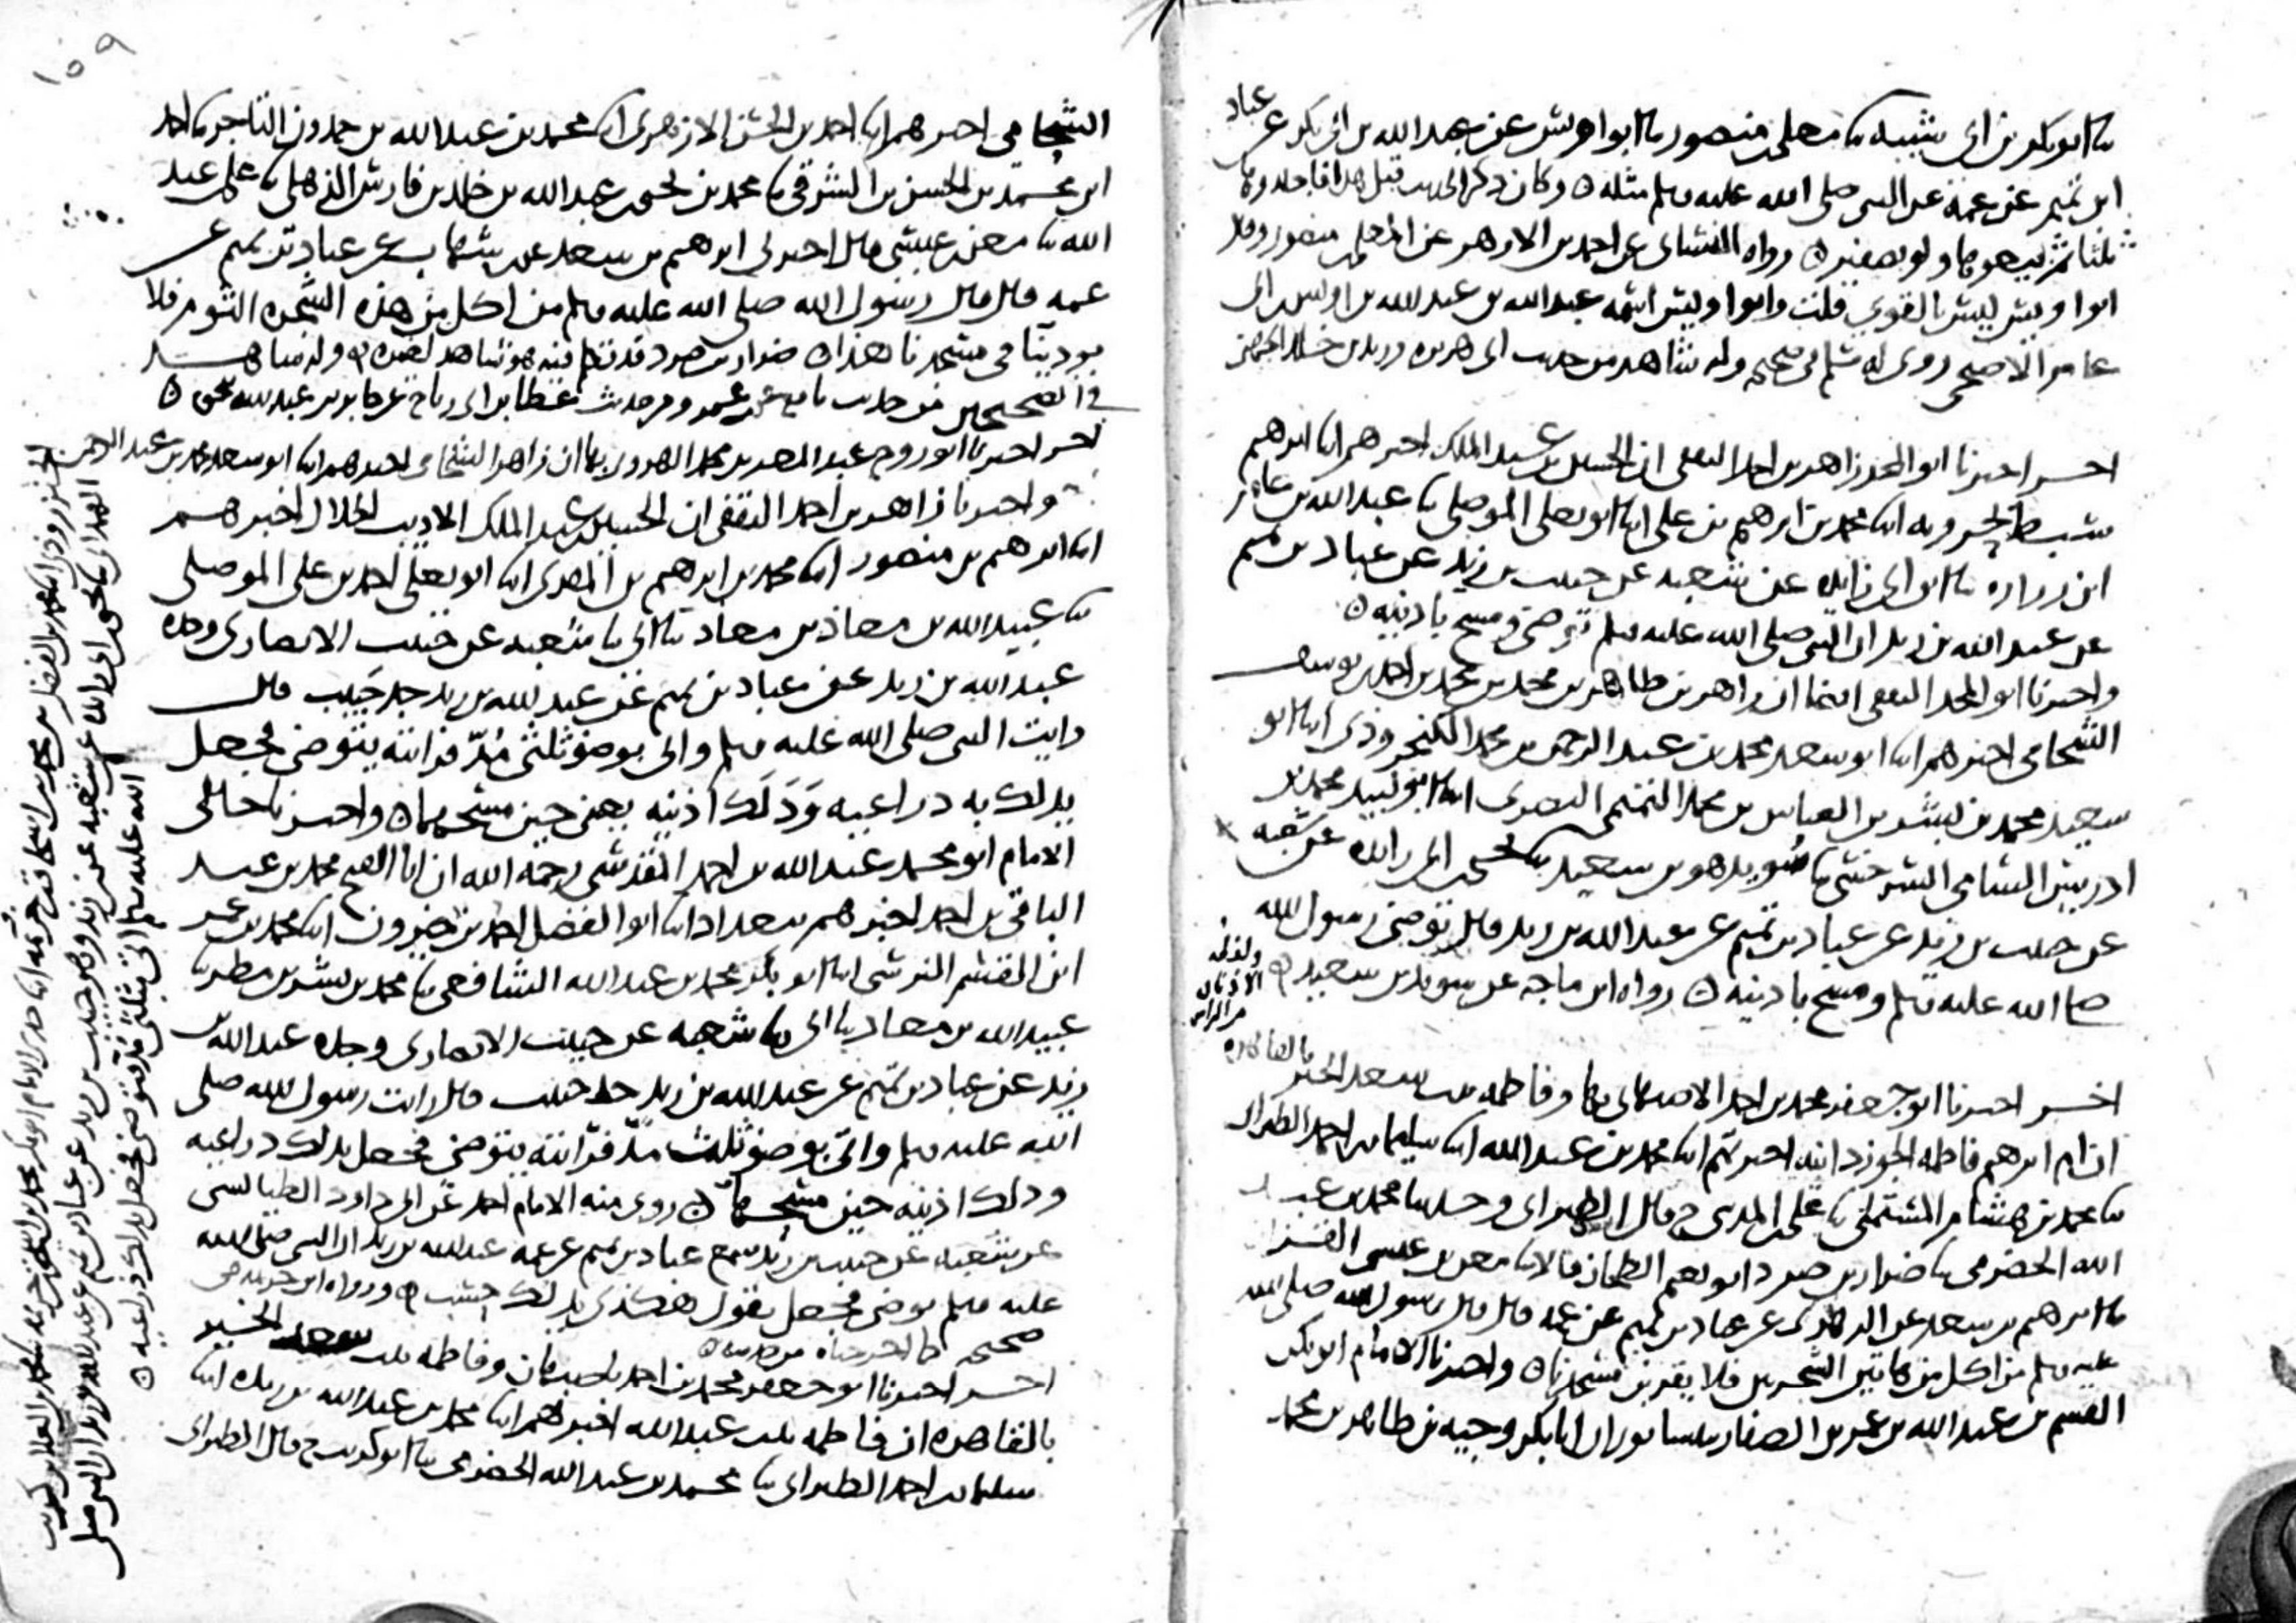 ثنا ابو بكر بن ابي شيبة ثنا معلى بن منصور ثنا ابو اويس عن عبد الله بن ابي بكر عن عباد
ابن تميم عن عمه عن النبي صلى الله عليه وسلم مثله ○ وكان ذكر الحديث قبل هذا فاجلدوها
ثلثا ثم بيعوها ولو بضفير ○ رواه النسائي عن احمد بن الازهر عن المعلى بن منصور وقال
ابو اويس ليس بالقوي قلت وابو اويس اسمه عبد الله بن عبد الله بن اويس بن ابي
عامر الاصبحي روى له مسلم في صحيحه وله شاهد من حديث ابي هريرة وزيد بن خالد الجهني
اخر اخبرنا ابو المجد زاهر بن احمد الثقفي ان الحسين بن عبد الملك اخبرهم ابنا ابرهيم
سبط بحرويه ابنا محمد بن ابرهيم بن علي ابنا ابو يعلى الموصلي ثنا عبد الله بن عامر
ابن زرارة ثنا ابن ابي زائدة عن شعبة عن حبيب بن زيد عن عباد بن تميم
عن عبد الله بن زيد ان النبي صلى الله عليه وسلم توضى ومسح باذنيه ○
واخبرنا ابو المجد الثقفي ايضا ان زاهر بن طاهر بن محمد بن محمد بن احمد بن يوسف
الشحامي اخبرهم ابنا ابو سعد محمد بن عبد الرحمن بن محمد الكنجروذي ابنا ابو
سعيد محمد بن بشر بن العباس بن محمد التميمي البصري ابنا ابو لبيد محمد بن
ادريس الشامي السرخسي ثنا سويد هو بن سعيد ثنا يحيى بن ابي زائدة عن شعبة
عن حبيب بن زيد عن عباد بن تميم عن عبد الله بن زيد قال توضى رسول الله
صلى الله عليه وسلم ومسح باذنيه ○ رواه ابن ماجه عن سويد بن سعيد
ولفظه
الاذنان
من الراس
اخر اخبرنا ابو جعفر محمد بن احمد الاصبهاني بها وفاطمة بنت سعد الخير بالقاهرة
ان ام ابرهيم فاطمة الجوزدانية اخبرتهم ابنا محمد بن عبد الله ابنا سليمان بن احمد الطبراني
ثنا محمد بن هشام المستملي ثنا علي بن المديني ح قال الطبراني وحدثنا محمد بن عبد
الله الحضرمي ثنا ضرار بن صرد ابو نعيم الطحان قالا ثنا معن بن عيسى القزاز
ثنا ابرهيم بن سعد عن الزهري عن عباد بن تميم عن عمه قال قال رسول الله صلى الله
عليه وسلم من اكل من هاتين الشجرتين فلا يقربن مسجدنا ○ واخبرنا الامام ابو بكر
القسم بن عبد الله بن عمر بن الصفار بنيسابور ان ابا بكر وجيه بن طاهر بن محمد
١٥٩
الشحامي اخبرهم ابنا احمد بن الحسن الازهري ابنا محمد بن عبد الله بن حمدون التاجر ثنا احمد
ابن محمد بن الحسن بن الشرقي ثنا محمد بن يحيى بن عبد الله بن خلد بن فارس الذهلي ثنا علي بن عبد
الله ثنا معن بن عيسى قال اخبرني ابرهيم بن سعد عن بن شهاب عن عباد بن تميم عن
عمه قال قال رسول الله صلى الله عليه وسلم من اكل من هذه الشجرة الثوم فلا
يوذينا في مسجدنا هذا ○ ضرار بن صرد قد تكلم فيه وله شاهد
في الصحيحين من حديث نافع عن بن عمر ومن حديث عطا بن ابي رباح عن جابر بن عبد الله
اخر اخبرنا ابو روح عبد المعز بن محمد الهروي بها ان زاهر الشحامي اخبرهم ابنا ابو سعد محمد بن عبد الرحمن
واخبرنا زاهر بن احمد الثقفي ان الحسين بن عبد الملك الاديب الخلال اخبرهم
ابنا ابرهيم بن منصور ابنا محمد بن ابرهيم بن المقري ابنا ابو يعلى احمد بن علي الموصلي
ثنا عبيد الله بن معاذ بن معاذ ثنا ابي ثنا شعبة عن حبيب الانصاري وجده
عبد الله بن زيد عن عباد بن تميم عن عبد الله بن زيد جد حبيب قال
رايت النبي صلى الله عليه وسلم واتي بوضوء ثلثي مد فرايته يتوضى فجعل
يدلك به ذراعيه ودلك اذنيه يعني حين مسحهما ○ واخبرنا خالي
الامام ابو محمد عبد الله بن احمد المقدسي رحمه الله ان ابا الفتح محمد بن عبد
الباقي بن احمد اخبرهم ببغداد ابنا ابو الفضل احمد بن خيرون ابنا محمد بن عمر
ابن القسم النرسي ابنا ابو بكر محمد بن عبد الله الشافعي ثنا محمد بن بشر بن مطر ثنا
عبيد الله بن معاذ ثنا ابي ثنا شعبة عن حبيب الانصاري وجده عبد الله بن
زيد عن عباد بن تميم عن عبد الله بن زيد جد حبيب قال رايت رسول الله صلى
الله عليه وسلم واتي بوضوء ثلث مد فرايته يتوضى فجعل يدلك ذراعيه
ودلك اذنيه حين مسحهما ○ روى منه الامام احمد عن ابي داود الطيالسي
عن شعبة عن حبيب بن زيد سمع عباد بن تميم عن عمه عبد الله بن زيد ان النبي صلى الله
عليه وسلم توضى فجعل يقول هكذى يدلك ورواه ابن خزيمة في
صحيحه
اخر اخبرنا ابو جعفر محمد بن احمد باصبهان وفاطمة بنت سعد الخير
بالقاهرة ان فاطمة بنت عبد الله اخبرتهم ابنا محمد بن عبد الله بن ريذة ابنا
سليمان بن احمد الطبراني ثنا محمد بن عبد الله الحضرمي ثنا ابو كريب ح قال الطبراني
الهمداني ثنا يحيى بن ابي زائدة عن شعبة عن بن زيد وهو حبيب بن زيد عن عباد بن تميم عن عبد الله بن زيد ان النبي صلى
الله عليه وسلم اتي بثلثي مد فتوضى فجعل يدلك ذراعيه ○